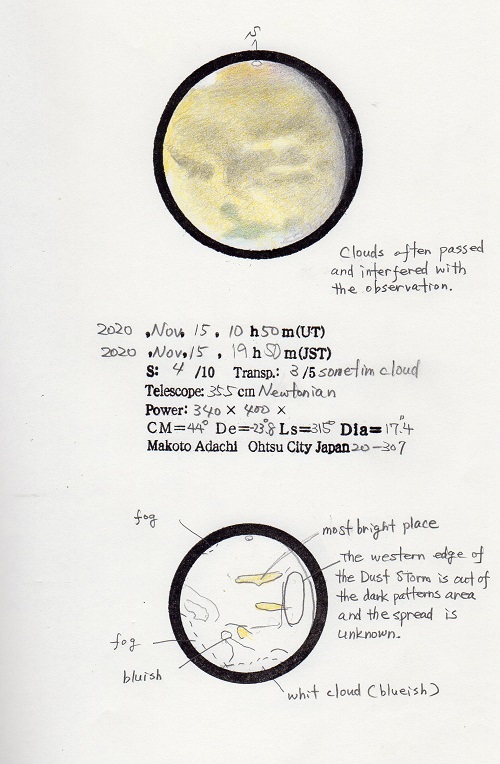 S
Clouds often passed
and interfered with
the observation.
2020 .Nov. 15 . 10 h 50 m (UT)
2020 .Nov. 15 . 19 h 50 m (JST)
S: 4 /10 Transp.: 3 /5 sometim cloud
Telescope: 355 cm Newtonian
Power: 340 × 400 ×
CM=44° De=-23.8° Ls=315° Dia=17.4"
Makoto Adachi Ohtsu City Japan 20-307
fog
most bright place
The western edge of
the Dust Storm is out of
the dark patterns area
and the spread is
unknown.
fog
bluish
whit cloud (blueish)